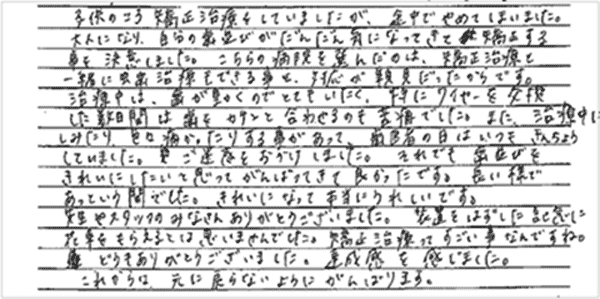 子供のころ矯正治療をしていましたが、途中でやめてしまいました。
大人になり、自分の歯並びがだんだん気になってきて矯正する
事を決意しました。こちらの病院を選んだのは、矯正治療と
一緒に虫歯治療もできる事と、対応が親身だったからです。
治療中は、歯が動くのでとてもいたく、特にワイヤーを交換
した数日間は歯をカチンと合わせるのも苦痛でした。また、治療中に
しみたり色々痛かったりする事があって、歯医者の日はいつもきんちょう
していました。ご迷惑をおかけしました。それでも歯並びを
きれいにしたいと思ってがんばってきて良かったです。長い様で
あっという間でした。きれいになって本当にうれしいです。
先生やスタッフのみなさんありがとうございました。装置をはずした記念に
花束をもらえるとは思いませんでした。矯正治療ってすごい事なんですね。
どうもありがとうございました。達成感を感じました。
これからは、元に戻らないようにがんばります。